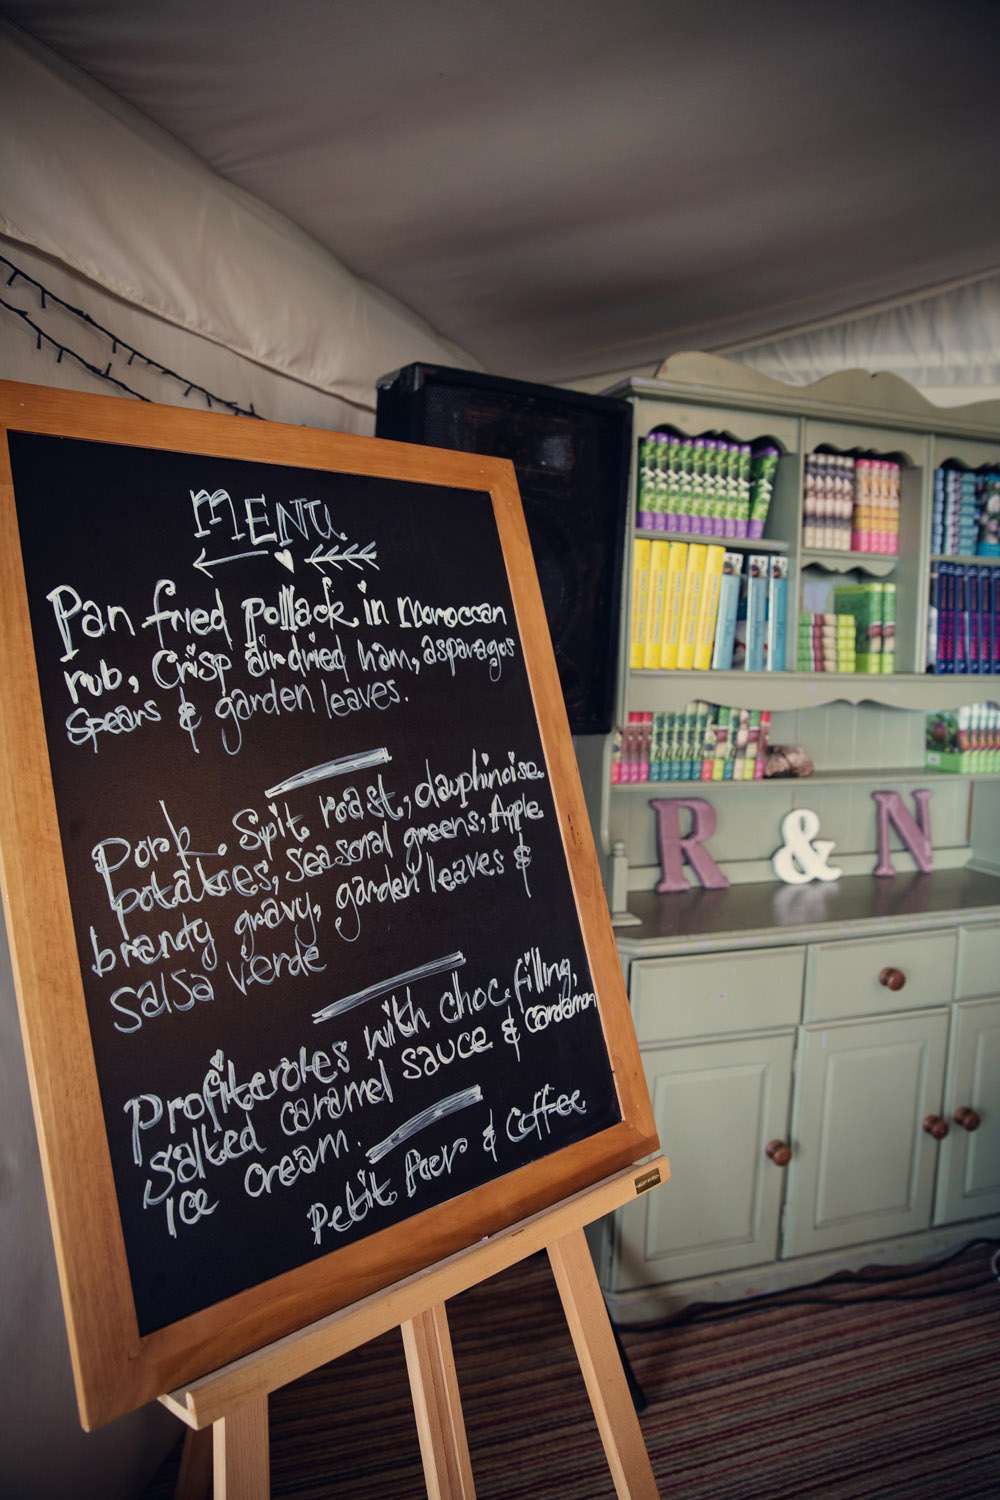 MENU
Pan fried Pollack in Moroccan
rub, Crisp air dried ham, asparagos
Spears & garden leaves.
Pork. Spit roast, dauphinoise
potatoes, Seasonal greens, Apple
brandy gravy, garden leaves &
Salsa Verde
Profiteroles with choc filling,
Salted caramel sauce & Cardamon
Ice cream.
Petit Foer & Coffee
R & N